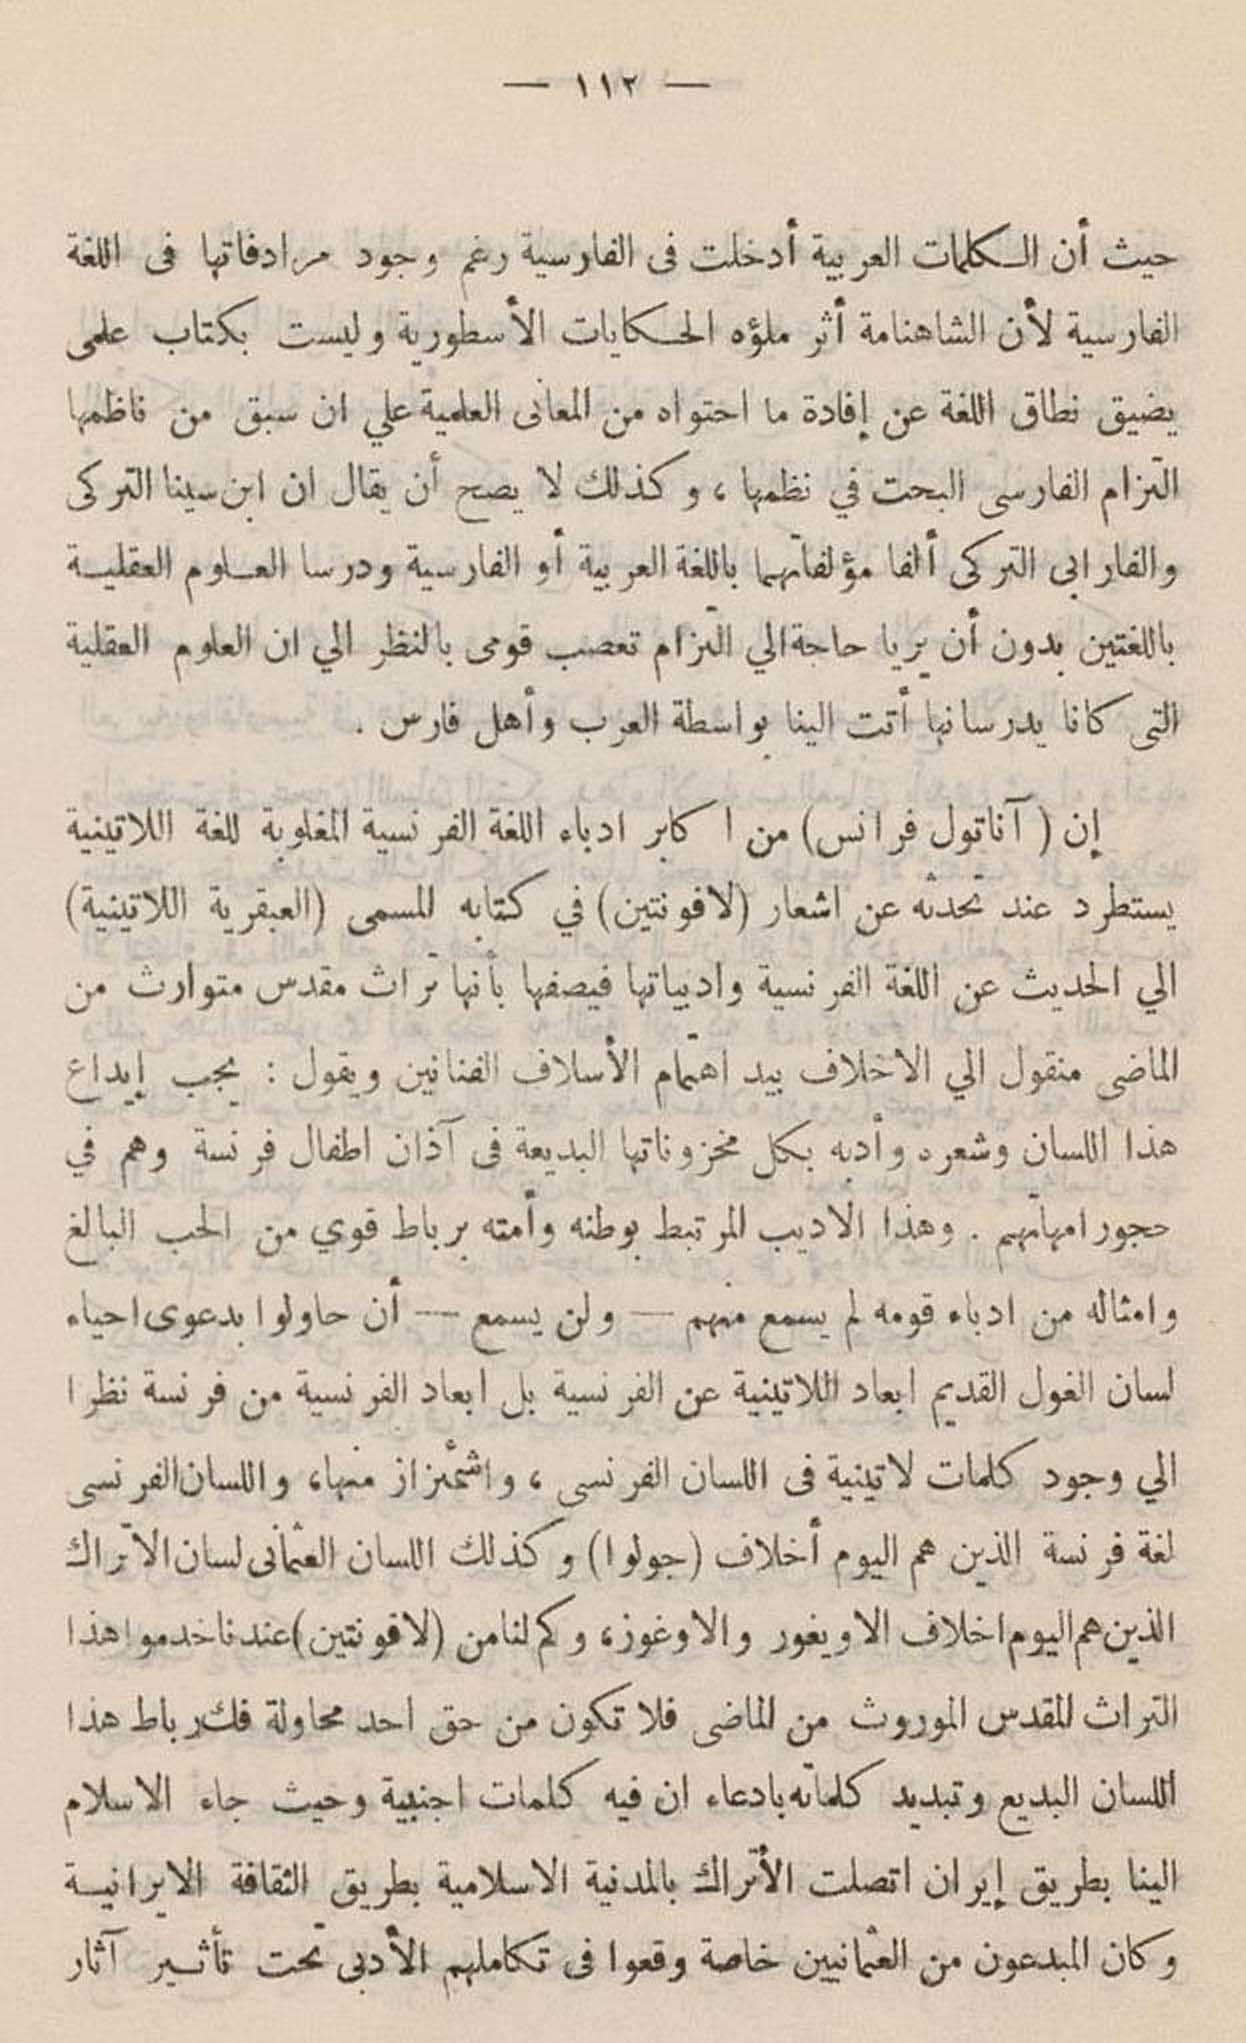 — ١١٢ —
حيث أن الكلمات العربية أدخلت فى الفارسية رغم وجود مرادفاتها فى اللغة
الفارسية لأن الشاهنامة أثر ملؤه الحكايات الأسطورية وليست بكتاب علمى
يضيق نطاق اللغة عن إفادة ما احتواه من المعانى العلمية علي ان سبق من ناظمها
التزام الفارسى البحت في نظمها ، وكذلك لا يصح أن يقال ان ابن سينا التركى
والفارابى التركى ألفا مؤلفاتهما باللغة العربية أو الفارسية ودرسا العلوم العقلية
باللغتين بدون أن يريا حاجة الي التزام تعصب قومى بالنظر الي ان العلوم العقلية
التى كانا يدرسانها أتت الينا بواسطة العرب وأهل فارس .
إن ( آناتول فرانس) من اكابر ادباء اللغة الفرنسية المغلوبة للغة اللاتينية
يستطرد عند تحدثه عن اشعار (لافونتين) في كتابه المسمى (العبقرية اللاتينية)
الي الحديث عن اللغة الفرنسية وادبياتها فيصفها بأنها تراث مقدس متوارث من
الماضى منقول الي الاخلاف بيد اهتمام الأسلاف الفنانين ويقول : يجب إيداع
هذا اللسان وشعره وأدبه بكل مخزوناتها البديعة فى آذان اطفال فرنسة وهم في
حجور امهاتهم . وهذا الاديب المرتبط بوطنه وأمته برباط قوي من الحب البالغ
وامثاله من ادباء قومه لم يسمع منهم — ولن يسمع — أن حاولوا بدعوى احياء
لسان الغول القديم ابعاد اللاتينية عن الفرنسية بل ابعاد الفرنسية من فرنسة نظرا
الي وجود كلمات لاتينية فى اللسان الفرنسى ، واشمئزاز منها، واللسان الفرنسى
لغة فرنسة الذين هم اليوم أخلاف (جولوا) وكذلك اللسان العثمانى لسان الاتراك
الذين هم اليوم اخلاف الاويغور والاوغوز، وكم لنا من (لافونتين) عندنا خدموا هذا
التراث المقدس الموروث من الماضى فلا تكون من حق احد محاولة فك رباط هذا
اللسان البديع وتبديد كلماته بادعاء ان فيه كلمات اجنبية وحيث جاء الاسلام
الينا بطريق إيران اتصلت الأتراك بالمدنية الاسلامية بطريق الثقافة الايرانية
وكان المبدعون من العثمانيين خاصة وقعوا فى تكاملهم الأدبى تحت تأثير آثار